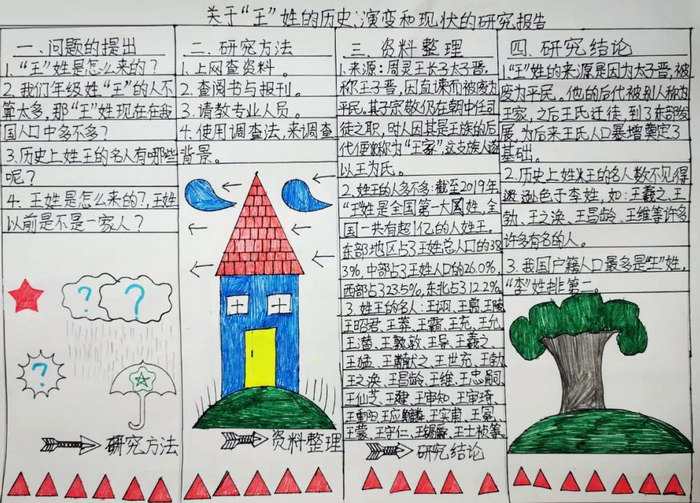 关于“王”姓的历史、演变和现状的研究报告
一、问题的提出
1.“王”姓是怎么来的？
2.我们年级姓“王”的人不
算太多，那“王”姓现在在我
国人口中多不多？
3.历史上姓王的名人有哪些
呢？
4.王姓是怎么来的？，王姓
以前是不是一家人？
?
?
?
研究方法
二、研究方法
1.上网查资料。
2.查阅书与报刊。
3.请教专业人员。
4.使用调查法，来调查
背景。
资料整理
三、资料整理
1.来源：周灵王长子太子晋，
称王子晋，因直谏而被废为
平民，其子宗敬仍在朝中任司
徒之职，时人因其是王族的后
代便称为“王家”，这支族人遂
以王为氏。
2.姓王的人多不多：截至2019年
“王姓是全国第一大姓，全
国一共有超1亿的人姓王，
东部地区占王姓总人口的38
3%，中部占王姓人口的26.0%，
西部占323.5%，东北占12.2%
3.姓王的名人：王翊、王翦、王陵
王昭君、王莽、王霸、王充、王允、
王潜、王敦、王导、王羲之
王猛、王献之、王世充、王勃、
王之涣、王昌龄、王维、王忠嗣、
王仙芝、王建、王审知、王审琦、
王重阳、王应麟、王实甫、王冕、
王蒙、王守仁、王锡爵、王士祯等
研究结论
四、研究结论
1.“王”姓的来源是因为太子晋，被
废为平民。他的后代被别人称为
王家，之后王氏迁徙，到了东部发
展，为后来王氏人口暴增奠定了
基础。
2.历史上姓王的名人数不见得
逊色于李姓，如：王羲之、王
勃、王之涣、王昌龄、王维等许多
许多有名的人。
3.我国户籍人口最多是“王”姓，
“李”姓排第二。